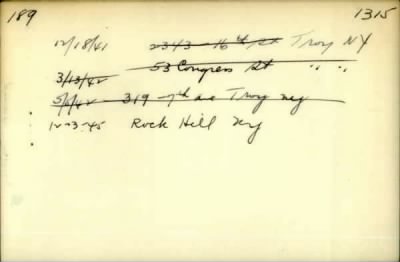 189 1315
12/18/41 2343 - 16th St Troy NY
53 Congress St " "
3/13/42
5/6/42 - 319 - 7th ave Troy ny
12-3-45 Rock Hill ny